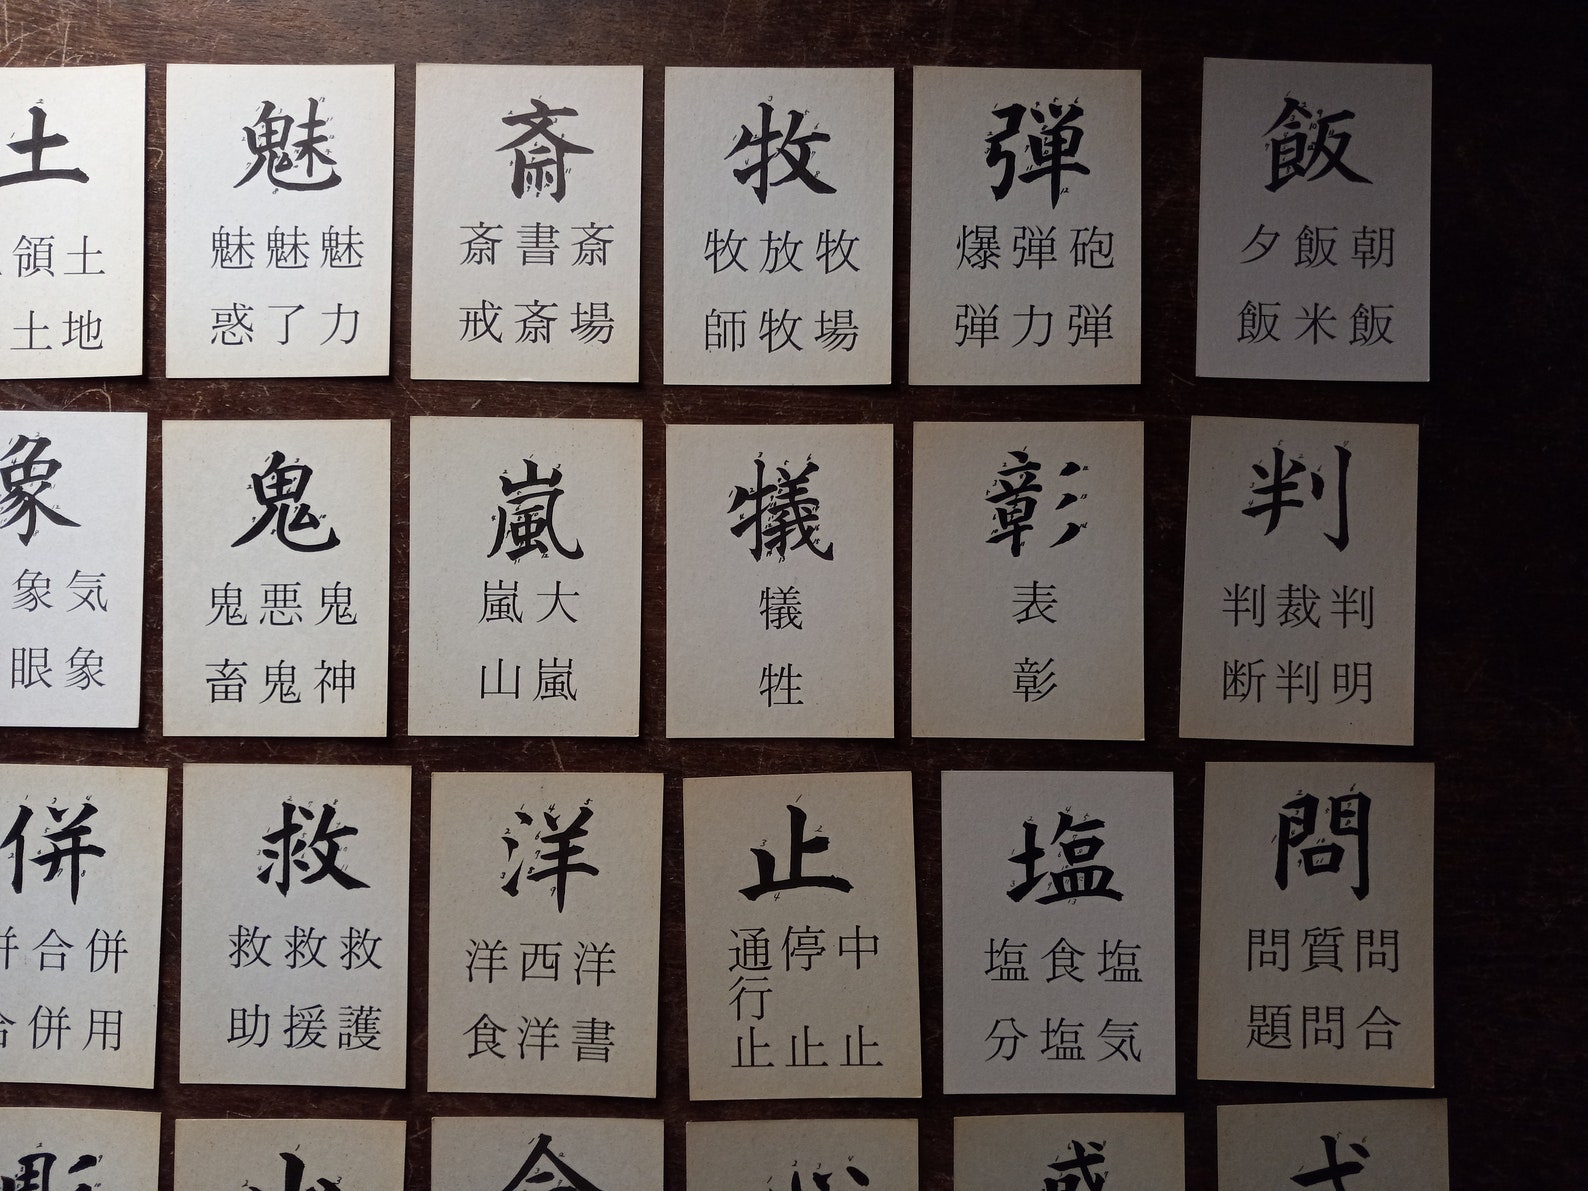 土
土地
領土
魅
魅力
魅了
魅惑
斎
斎場
書斎
斎戒
牧
牧場
放牧
牧師
弾
砲弾
弾力
爆弾
飯
朝飯
飯米
夕飯
象
気象
象眼
鬼
鬼神
悪鬼
鬼畜
嵐
大嵐
嵐山
犠
犠牲
彰
表彰
判
判明
裁判
判断
併
併用
合併
併合
救
救護
救援
救助
洋
洋書
西洋
洋食
止
中止
停止
通行止
塩
塩気
食塩
塩分
問
問合
質問
問題